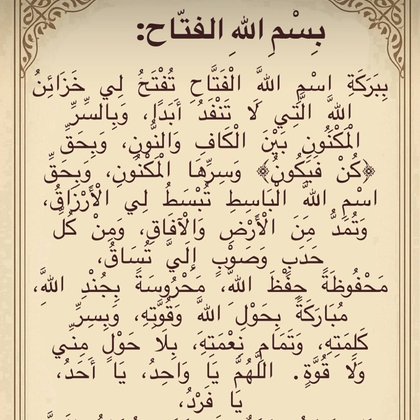 بِسْمِ اللهِ الفتّاح:
بِبَرَكَةِ اسْمِ اللَّهِ الْفَتَّاحِ تُفْتَحُ لِي خَزَائِنُ
اللَّهِ الَّتِي لَا تَنْفَدُ أَبَدًا، وَبِالسِّرِّ
الْمَكْنُونِ بَيْنَ الْكَافِ وَالنُّونِ، وَبِحَقِّ
﴿كُنْ فَيَكُونُ﴾ وَسِرِّهَا الْمَكْنُونِ، وَبِحَقِّ
اسْمِ اللَّهِ الْبَاسِطِ تُبْسَطُ لِي الْأَرْزَاقُ،
وَتُمَدُّ مِنَ الْأَرْضِ وَالْآفَاقِ، وَمِنْ كُلِّ
حَدَبٍ وَصَوْبٍ إِلَيَّ تُسَاقُ،
مَحْفُوظَةً بِحِفْظِ اللَّهِ، مَحْرُوسَةً بِجُنْدِ اللَّهِ،
مُبَارَكَةً بِحَوْلِ اللَّهِ وَقُوَّتِهِ، وَبِسِرِّ
كَلِمَتِهِ، وَتَمَامِ نِعْمَتِهِ، بِلَا حَوْلٍ مِنِّي
وَلَا قُوَّةٍ. اللَّهُمَّ يَا وَاحِدُ، يَا أَحَدُ،
يَا فَرْدُ،